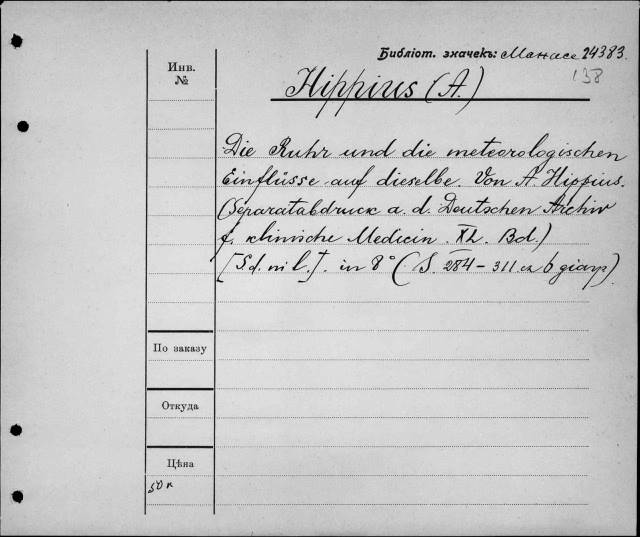 Библіот. значекъ: Манасс 24383.
138
Инв.
№
Hippius (A.)
Die Ruhr und die meteorologischen
Einflüsse auf dieselbe. Von A. Hippius.
(Separatabdruck a. d. Deutschen Archiv
f. klinische Medicin. XL. Bd.)
[S. d. ni l.]. in 8° (S. 284-311 съ 6 діагр.)
По заказу
Откуда
Цѣна
50 к